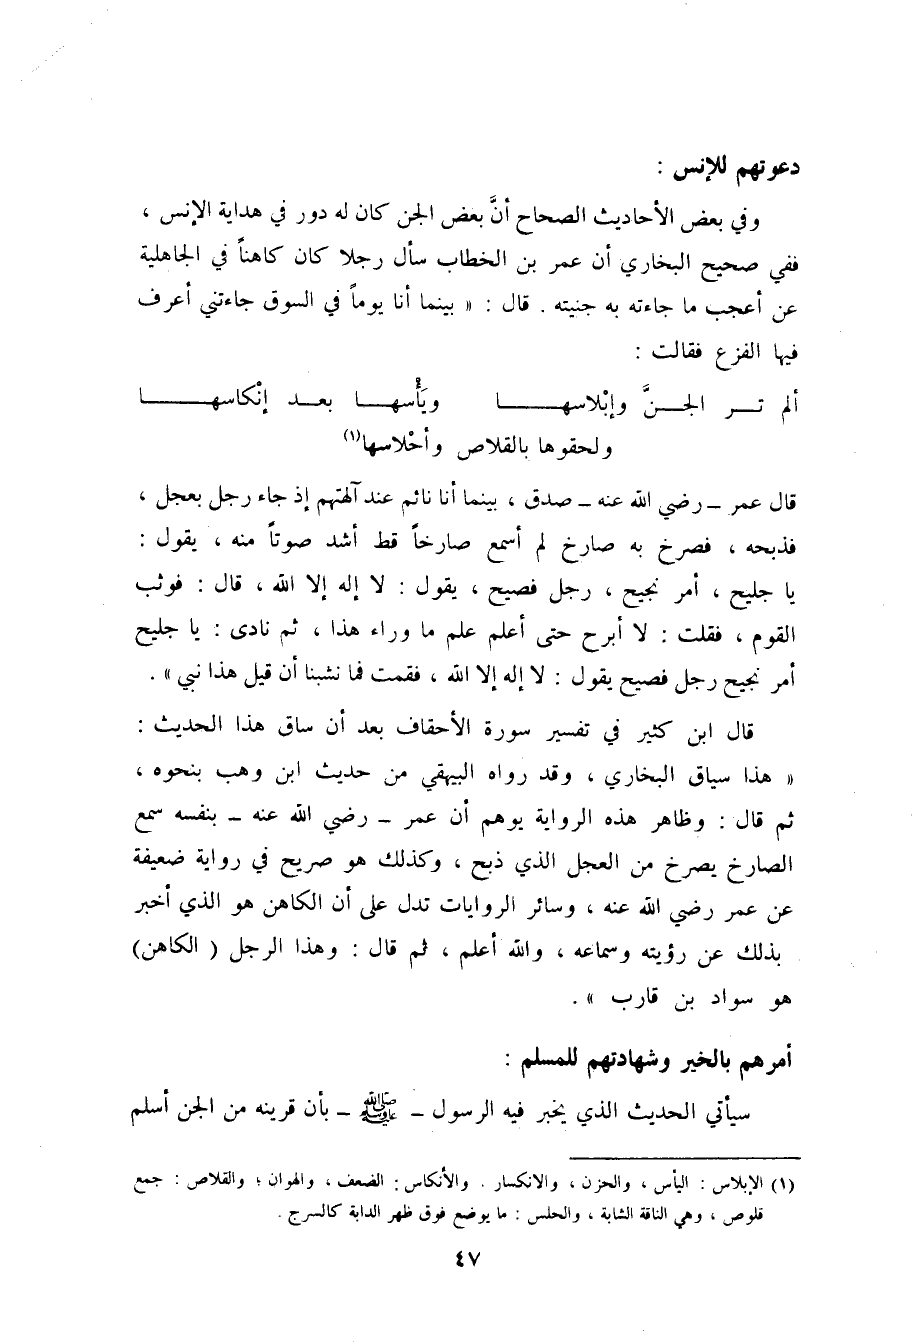 دعوتهم للإنس :
وفي بعض الأحاديث الصحاح أنَّ بعض الجن كان له دور في هداية الإنس ،
ففي صحيح البخاري أن عمر بن الخطاب سأل رجلا كان كاهناً في الجاهلية
عن أعجب ما جاءته به جنيته . قال : « بينما أنا يوماً في السوق جاءتني أعرف
فيها الفزع فقالت :
ألم تــر الجــنَّ وإبْلاسهــــا ويَأْسهــا بعــد إنْكاسهــــا
ولحقوها بالقلاص وأحْلاسها(١)
قال عمر ــ رضي الله عنه ــ صدق ، بينما أنا نائم عند آلهتهم إذ جاء رجل بعجل ،
فذبحه ، فصرخ به صارخ لم أسمع صارخاً قط أشد صوتاً منه ، يقول :
يا جليح ، أمر نجيح ، رجل فصيح ، يقول : لا إله إلا الله ، قال : فوثب
القوم ، فقلت : لا أبرح حتى أعلم علم ما وراء هذا ، ثم نادى : يا جليح
أمر نجيح رجل فصيح يقول : لا إله إلا الله ، فقمت فما نشبنا أن قيل هذا نبي » .
قال ابن كثير في تفسير سورة الأحقاف بعد أن ساق هذا الحديث :
« هذا سياق البخاري ، وقد رواه البيهقي من حديث ابن وهب بنحوه ،
ثم قال : وظاهر هذه الرواية يوهم أن عمر ــ رضي الله عنه ــ بنفسه سمع
الصارخ يصرخ من العجل الذي ذبح ، وكذلك هو صريح في رواية ضعيفة
عن عمر رضي الله عنه ، وسائر الروايات تدل على أن الكاهن هو الذي أخبر
بذلك عن رؤيته وسماعه ، والله أعلم ، ثم قال : وهذا الرجل ( الكاهن)
هو سواد بن قارب » .
أمرهم بالخير وشهادتهم للمسلم :
سيأتي الحديث الذي يخبر فيه الرسول ــ ﷺ ــ بأن قرينه من الجن أسلم
(١) الإبلاس : اليأس ، والحزن ، والانكسار . والأنكاس : الضعف ، والهوان ؛ والقلاص : جمع
قلوص ، وهي الناقة الشابة ، والحلس : ما يوضع فوق ظهر الدابة كالسرج .
٤٧